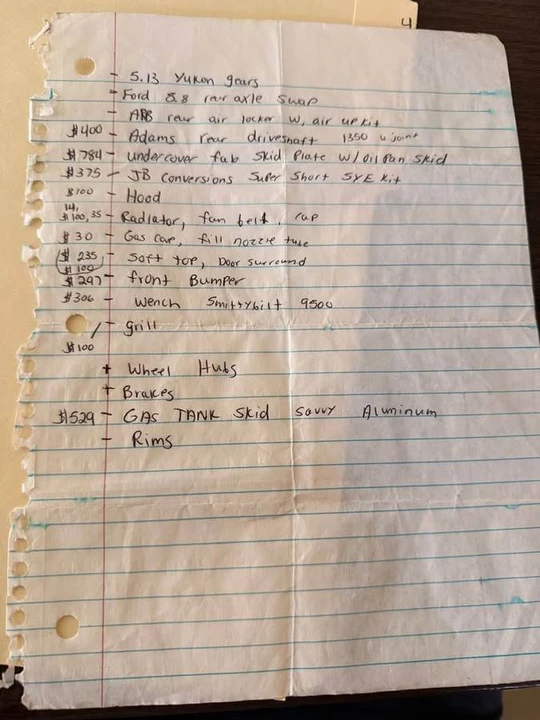 4
- 5.13 Yukon gears
- Ford 8.8 rear axle swap
- ARB rear air locker w, air up kit
$400 - Adams rear driveshaft 1350 u joint
$784 - undercover fab skid Plate w/ oil pan skid
$375 - JB conversions Super Short SYE kit
$100 - Hood
14,
$100, 35 - Radiator, fan belt, cap
$30 - Gas cap, fill nozzle tube
$235 - Soft top, Door surround
$100
$297 - front Bumper
$306 - wench Smittybilt 9500
- grill
$100
+ Wheel Hubs
+ Brakes
$529 - GAS TANK Skid Savvy Aluminum
- Rims